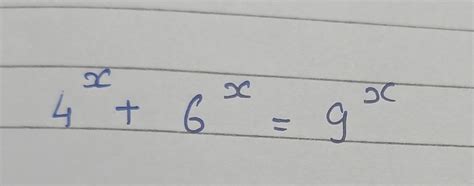 4^x + 6^x = 9^x